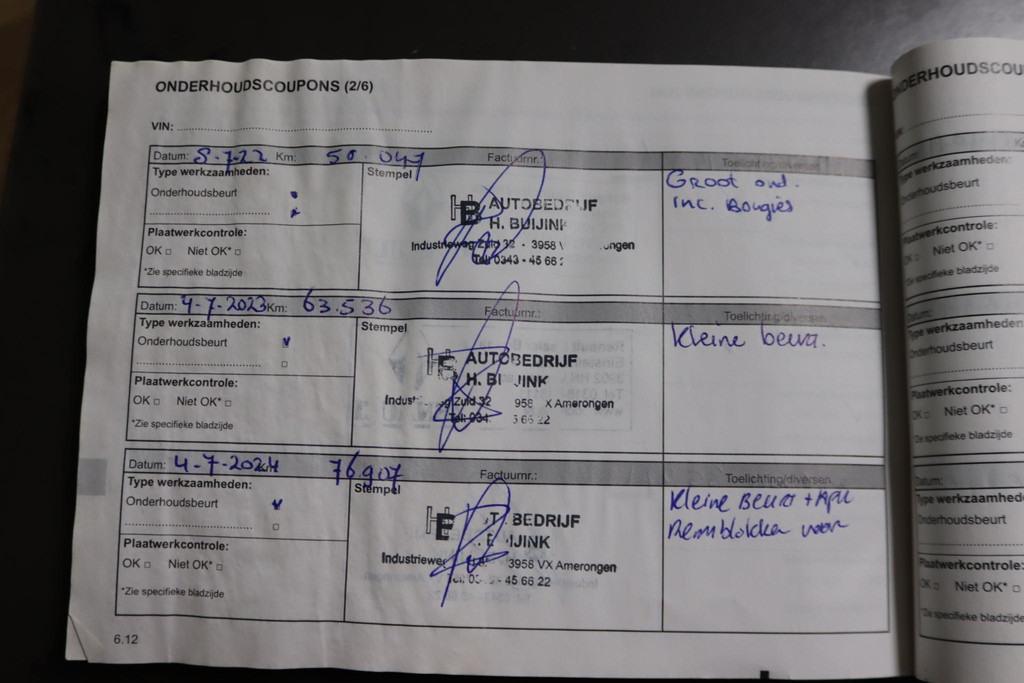 ONDERHOUDSCOUPONS (2/6)
VIN:
Datum: 8-7-22 Km: 50.047 Factuurnr.: Toelichting/diversen
Type werkzaamheden: Stempel Groot ond.
Onderhoudsbeurt inc. Bougies
AUTOBEDRIJF
H. BUIJINK
Plaatwerkcontrole:
Industrieweg Zuid 32 - 3958 V ongen
OK □ Niet OK* □
Tel. 0343 - 45 66 2
*Zie specifieke bladzijde
Datum: 4-7-2023 Km: 63.536 Factuurnr.: Toelichting/diversen
Type werkzaamheden: Stempel Kleine beurt.
Onderhoudsbeurt
AUTOBEDRIJF
H. BUIJINK
Plaatwerkcontrole:
OK □ Niet OK* □
Zuid 32 958 X Amerongen
Tel: 034 6 66 22
*Zie specifieke bladzijde
Datum: 4-7-2024 Km 76907 Factuurnr.: Toelichting/diversen
Type werkzaamheden: Stempel Kleine Beurt + Apk
Onderhoudsbeurt Remblokken voor
BEDRIJF
IJINK
Plaatwerkcontrole:
Industriewe 3958 VX Amerongen
OK □ Niet OK* □
Tel. 03 - 45 66 22
*Zie specifieke bladzijde
6.12
NDERHOUDSCOU
Type werkzaamheden:
Onderhoudsbeurt
Plaatwerkcontrole:
OK □ Niet OK* □
*Zie specifieke bladzijde
Datum:
Type werkzaamheden:
Onderhoudsbeurt
Plaatwerkcontrole:
OK □ Niet OK* □
*Zie specifieke bladzijde
Datum:
Type werkzaamhede
Onderhoudsbeurt
Plaatwerkcontrole:
OK □ Niet OK* □
*Zie specifieke bladzijde